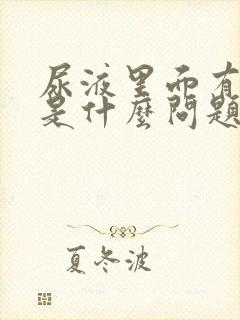 尿液里面有
是什麼問題
夏冬波